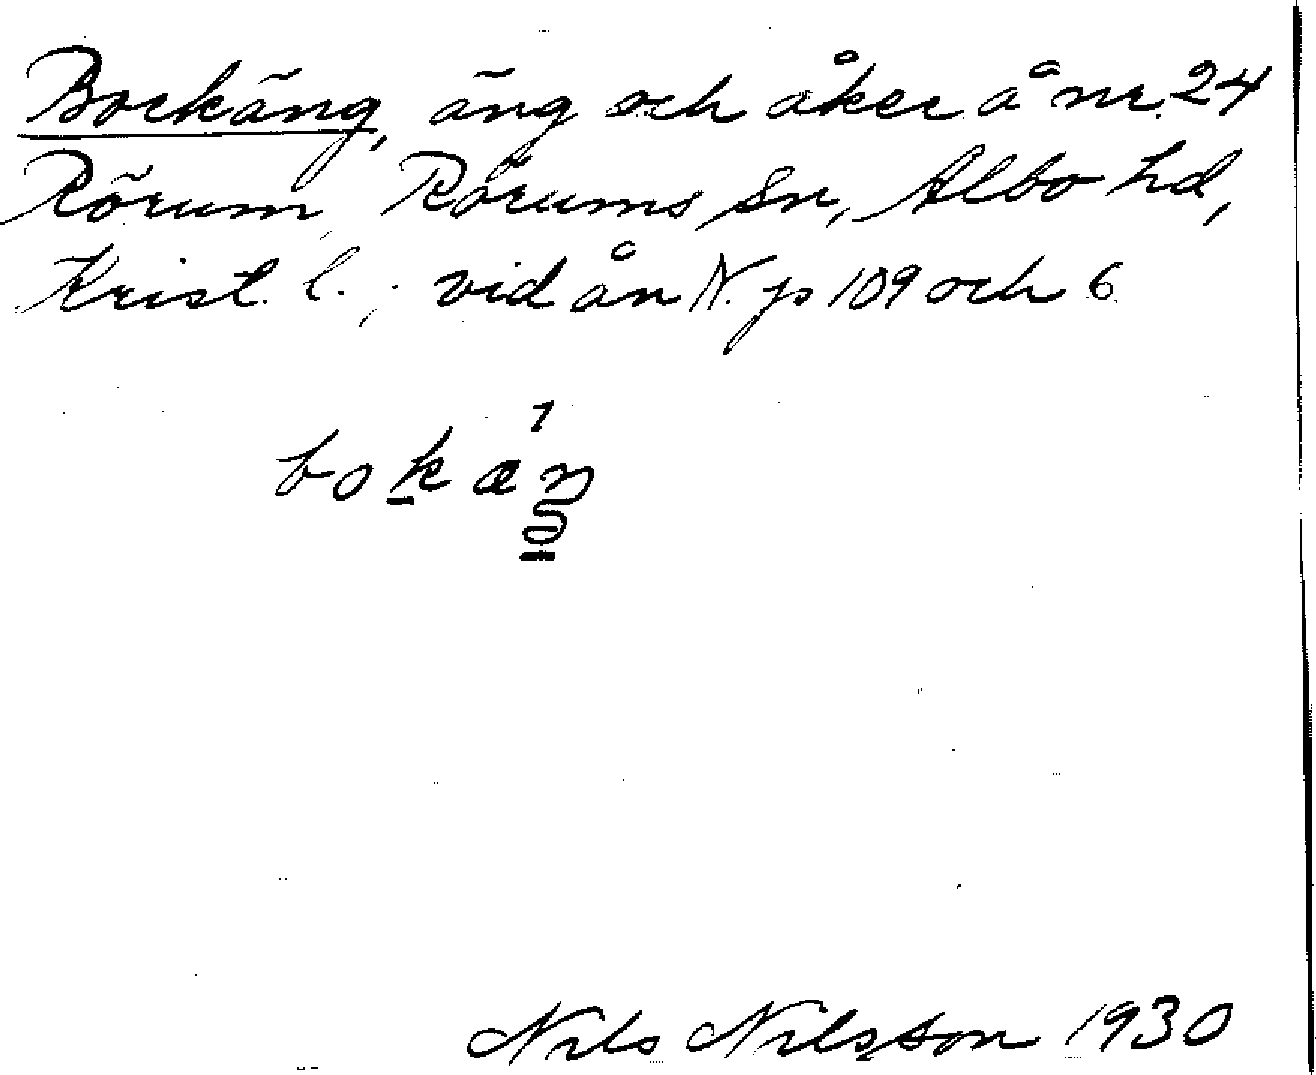 Bockäng, äng och åker å nr. 24
Rörum, Rörums sn, Albo hd,
Krist. l.; vid ån N. js 109 och 6
bokæŋ
Nils Nilsson 1930